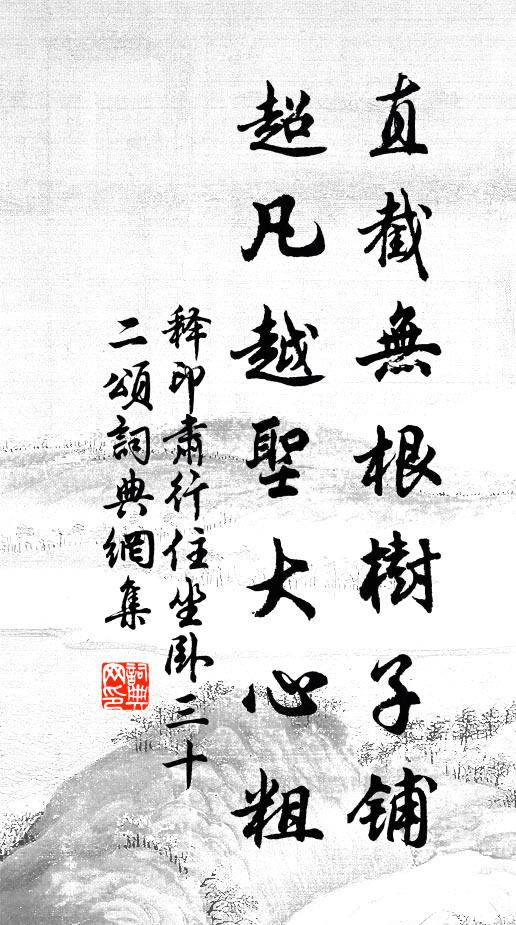 直截無根樹子鋪
超凡越聖大心粗
釋印肅行住坐臥三十
二頌詞典網集
詞典網印